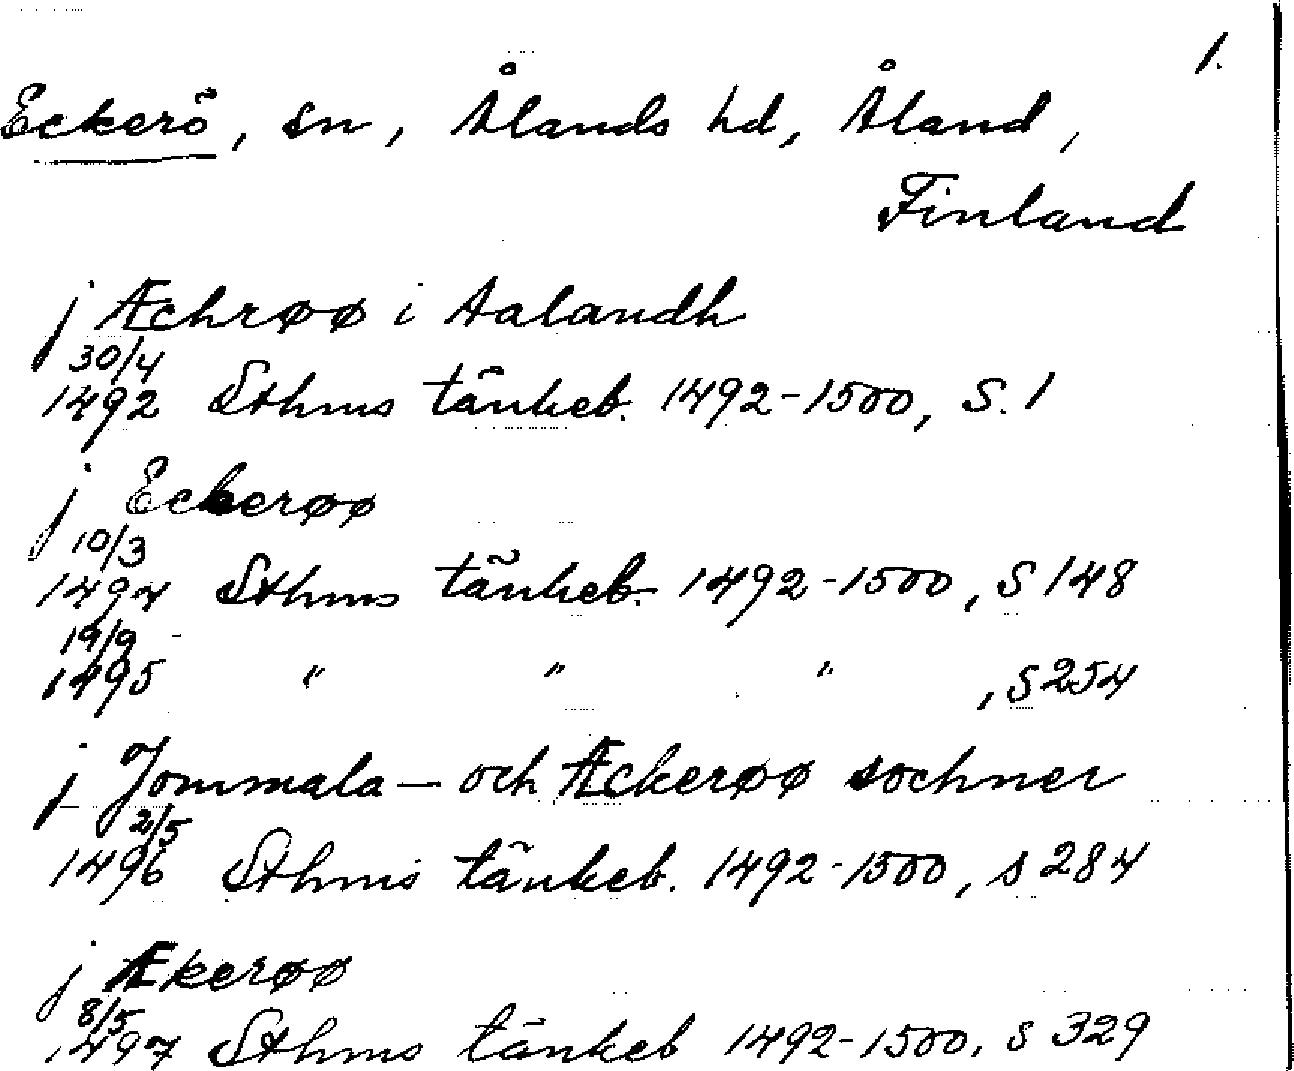 1.
Eckerö, sn, Ålands hd, Åland,
Finland
j Æchrøø i Aalandh
30/4
1492 Sthms tänkeb. 1492-1500, S. 1
j Eckerøø
10/3
1494 Sthms tänkeb. 1492-1500, S 148
19/9
1495 " " " , S 254
j Jommala — och Æckerøø sochner
2/5
1496 Sthms tänkeb. 1492-1500, s 284
j Ækerøø
8/5
1497 Sthms tänkeb 1492-1500, s 329